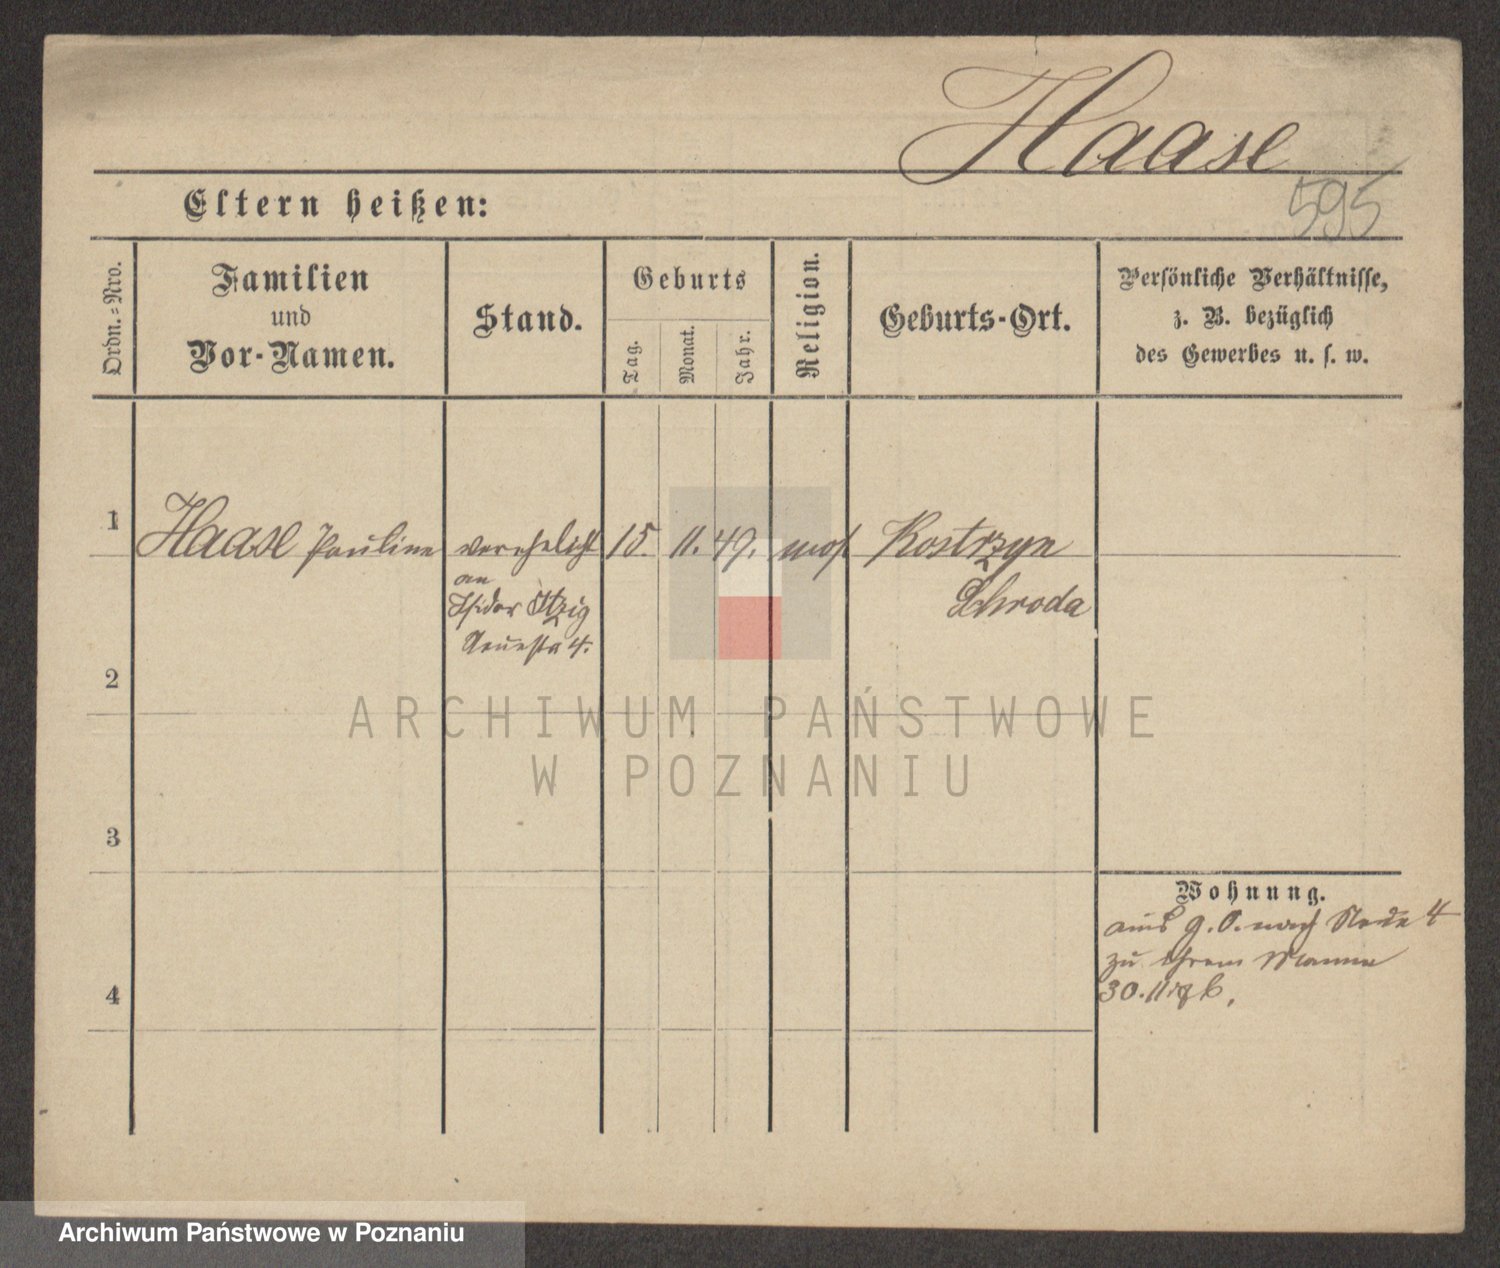 Haase
595
Eltern heißen:
Ordn.=Nro.
Familien
und
Vor-Namen.
Stand.
Geburts
Tag.
Monat.
Jahr.
Religion.
Geburts-Ort.
Persönliche Verhältnisse,
z. B. bezüglich
des Gewerbes u. s. w.
1
Haase Pauline
verehelicht
an
Isidor Itzig
15.
11.
49.
mos
Kostrzyn
Schroda
2
3
4
Wohnung.
aus g. O. nach
zu ihrem Manne
30.11
ARCHIWUM PAŃSTWOWE
W POZNANIU
Archiwum Państwowe w Poznaniu